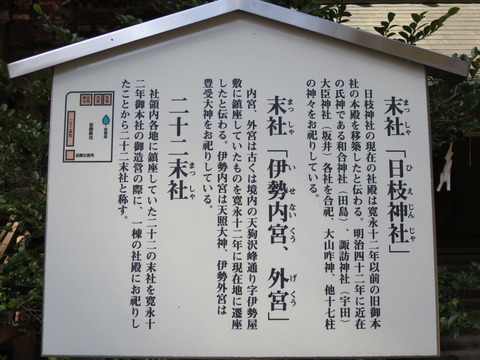 末社「日枝神社」
まつ しゃ ひ え じん じゃ
日枝神社の現在の社殿は寛永十二年以前の旧御本
社の本殿を移築したと伝わる。明治四十二年に近在
の氏神である和合神社(田島)、諏訪神社(宇田)
大臣神社(坂井)各社を合祀、大山咋神、他十七柱
の神々をお祀りしている。
末社「伊勢内宮、外宮」
まつ しゃ い せ ない くう げ くう
内宮、外宮は古くは境内の天狗沢峰通り字伊勢屋
敷に鎮座していたものを寛永十二年に現在地に遷座
したと伝わる。伊勢内宮は天照大神、伊勢外宮は
豊受大神をお祀りしている。
二十二末社
まつ しゃ
社領内各地に鎮座していた二十二の末社を寛永十
二年御本社の御造営の際に、一棟の社殿にお祀りし
たことから二十二末社と称す。